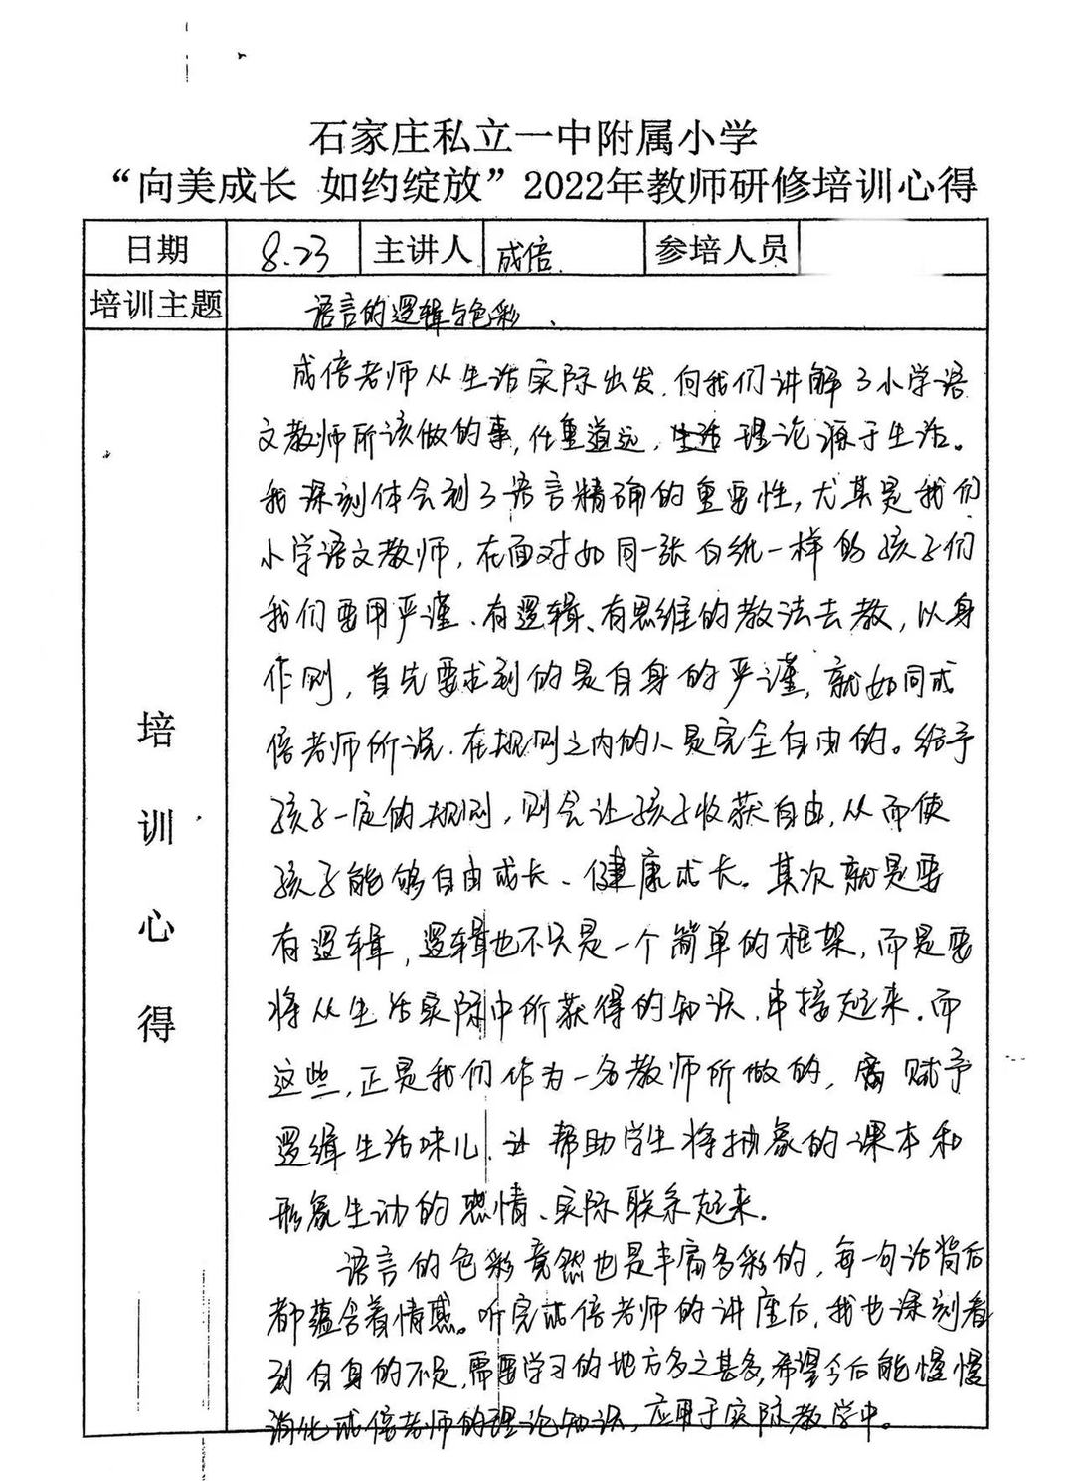 石家庄私立一中附属小学
“向美成长 如约绽放”2022年教师研修培训心得
日期 8.23 主讲人 成倍 参培人员
培训主题 语言的逻辑与色彩、
培训心得
成倍老师从生活实际出发,向我们讲解了小学语
文教师所该做的事,任重道远,生活理论源于生活。
我深刻体会到了语言精确的重要性,尤其是我们
小学语文教师,在面对如同一张白纸一样的孩子们
我们要用严谨、有逻辑、有思维的教法去教,以身
作则,首先要求到的是自身的严谨,就如同成
倍老师所说.在规则之内的人是完全自由的。给予
孩子一定的规则,则会让孩子收获自由,从而使
孩子能够自由成长、健康成长。其次就是要
有逻辑,逻辑也不只是一个简单的框架,而是要
将从生活实际中所获得的知识,串接起来.而
这些,正是我们作为一名教师所做的, 赋予
逻辑生活味儿, 帮助学生将抽象的课本和
形象生动的感情、实际联系起来.
语言的色彩竟然也是丰富多彩的,每一句话背后
都蕴含着情感。听完成倍老师的讲座后,我也深刻看
到自身的不足,需要学习的地方多之甚多,希望今后能慢慢
消化成倍老师的理论知识,应用于实际教学中。